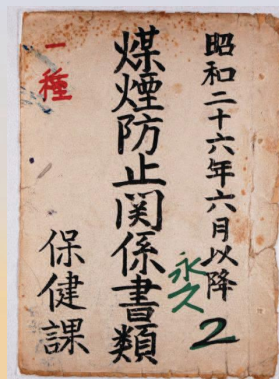 昭和二十六年六月以降
永久
2
煤煙防止関係書類
一種
保健課